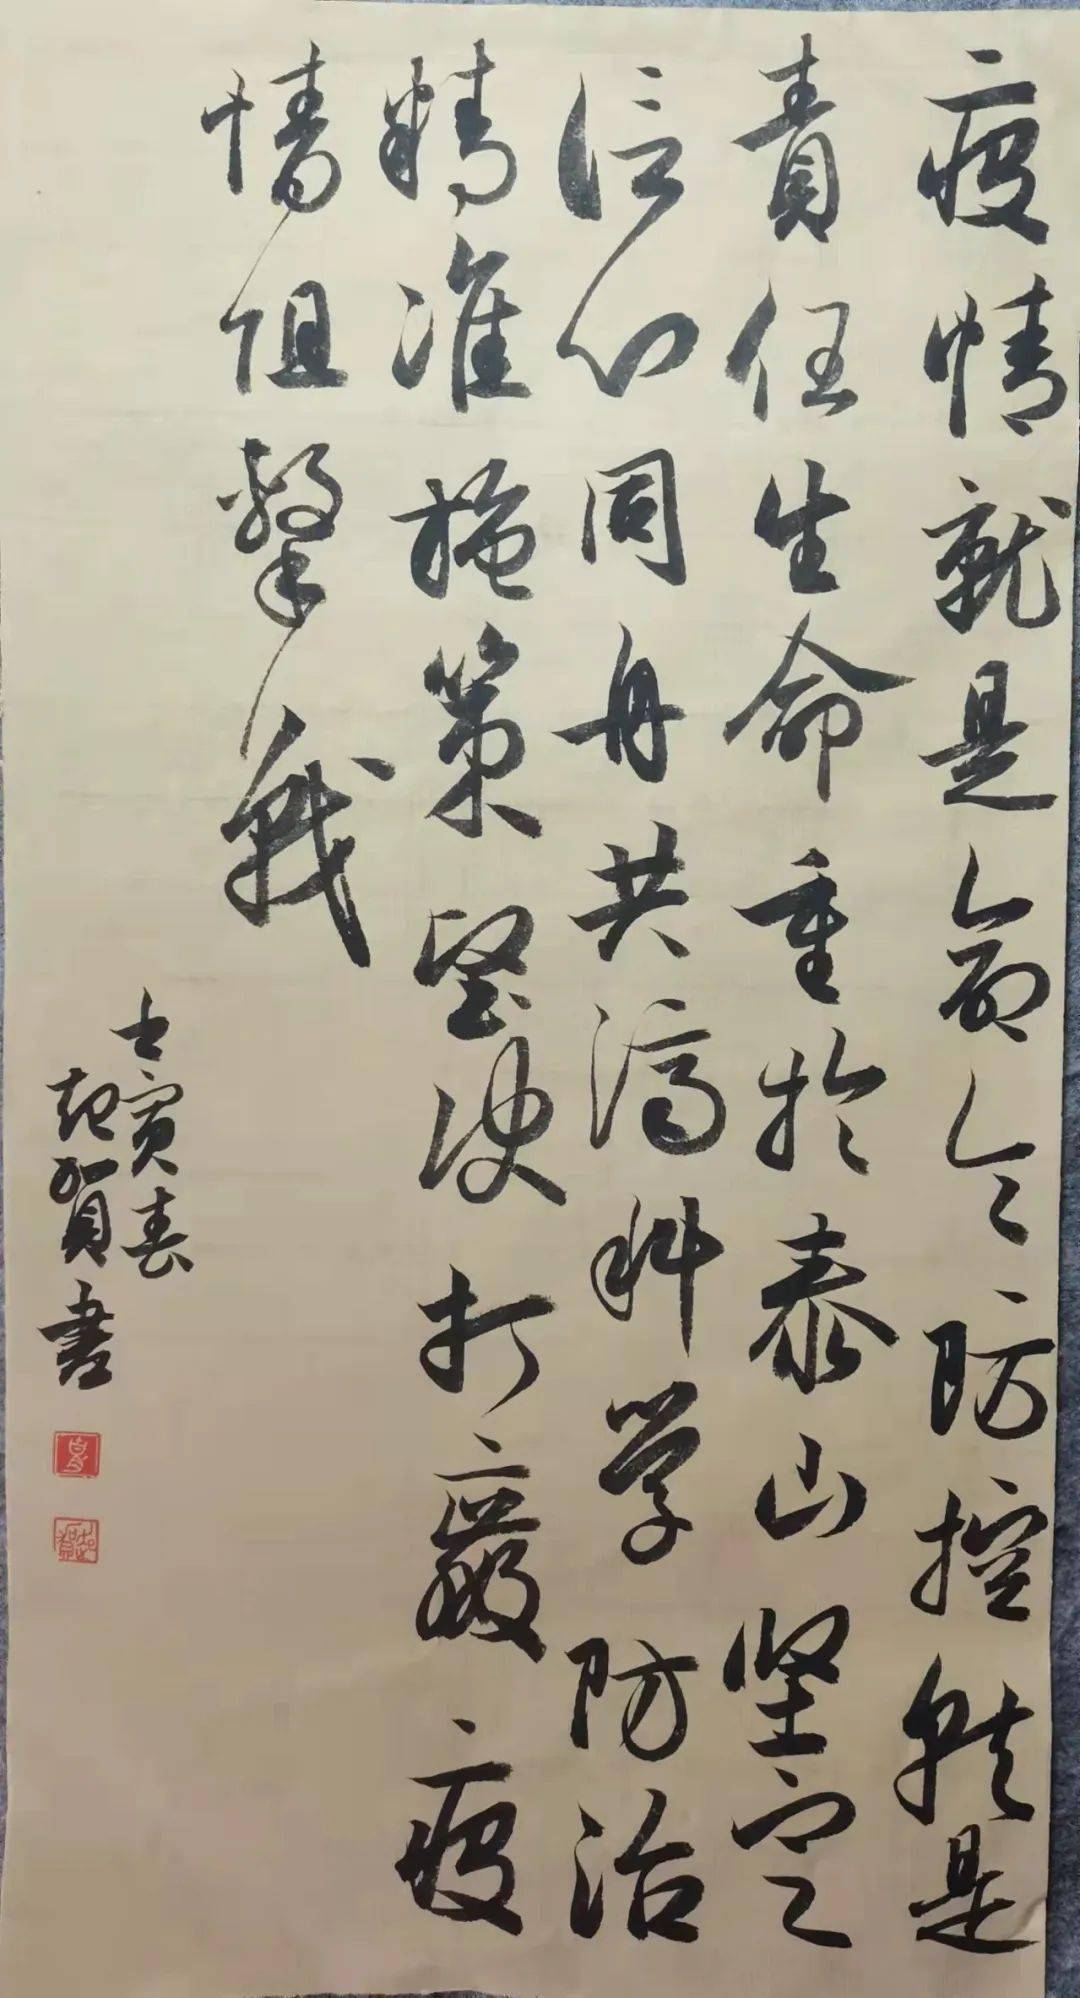 疫情就是命令防控就是
責任生命重於泰山坚定
信心同舟共濟科学防治
精准施策坚决打嬴疫
情阻擊戰
壬寅春
起賀書